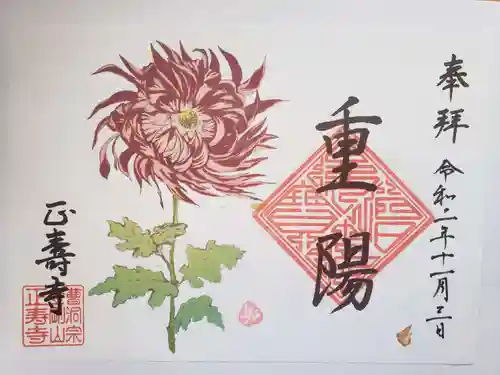 奉拝
令和二年十一月三日
重陽
正壽寺
曹洞宗
正寿寺